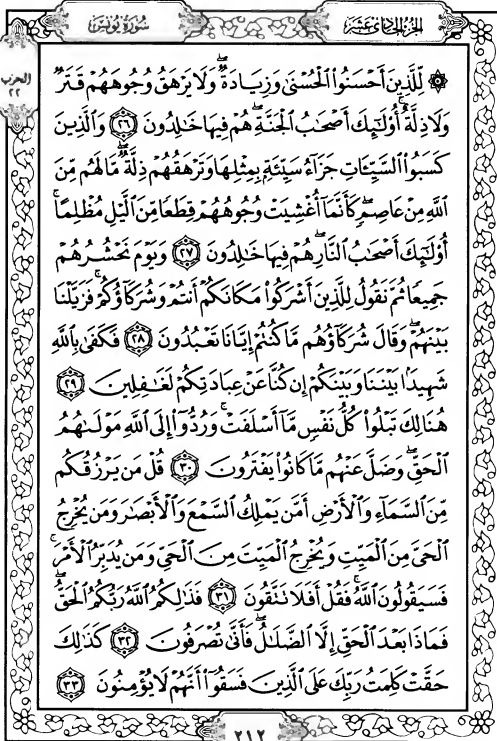 سُورَةُ يُونُسَ
الجزء الحادي عشر
الحزب
٢٢
۞ لِّلَّذِينَ أَحْسَنُوا۟ ٱلْحُسْنَىٰ وَزِيَادَةٌۖ وَلَا يَرْهَقُ وُجُوهَهُمْ قَتَرٌ
وَلَا ذِلَّةٌۚ أُو۟لَٰٓئِكَ أَصْحَٰبُ ٱلْجَنَّةِۖ هُمْ فِيهَا خَٰلِدُونَ ٢٦ وَٱلَّذِينَ
كَسَبُوا۟ ٱلسَّيِّـَٔاتِ جَزَآءُ سَيِّئَةٍۭ بِمِثْلِهَا وَتَرْهَقُهُمْ ذِلَّةٌۖ مَّا لَهُم مِّنَ
ٱللَّهِ مِنْ عَاصِمٍۖ كَأَنَّمَآ أُغْشِيَتْ وُجُوهُهُمْ قِطَعًا مِّنَ ٱلَّيْلِ مُظْلِمًاۚ
أُو۟لَٰٓئِكَ أَصْحَٰبُ ٱلنَّارِۖ هُمْ فِيهَا خَٰلِدُونَ ٢٧ وَيَوْمَ نَحْشُرُهُمْ
جَمِيعًا ثُمَّ نَقُولُ لِلَّذِينَ أَشْرَكُوا۟ مَكَانَكُمْ أَنتُمْ وَشُرَكَآؤُكُمْۚ فَزَيَّلْنَا
بَيْنَهُمْۖ وَقَالَ شُرَكَآؤُهُم مَّا كُنتُمْ إِيَّانَا تَعْبُدُونَ ٢٨ فَكَفَىٰ بِٱللَّهِ
شَهِيدًۢا بَيْنَنَا وَبَيْنَكُمْ إِن كُنَّا عَنْ عِبَادَتِكُمْ لَغَٰفِلِينَ ٢٩
هُنَالِكَ تَبْلُوا۟ كُلُّ نَفْسٍ مَّآ أَسْلَفَتْۚ وَرُدُّوٓا۟ إِلَى ٱللَّهِ مَوْلَىٰهُمُ
ٱلْحَقِّۖ وَضَلَّ عَنْهُم مَّا كَانُوا۟ يَفْتَرُونَ ٣٠ قُلْ مَن يَرْزُقُكُم
مِّنَ ٱلسَّمَآءِ وَٱلْأَرْضِ أَمَّن يَمْلِكُ ٱلسَّمْعَ وَٱلْأَبْصَٰرَ وَمَن يُخْرِجُ
ٱلْحَىَّ مِنَ ٱلْمَيِّتِ وَيُخْرِجُ ٱلْمَيِّتَ مِنَ ٱلْحَىِّ وَمَن يُدَبِّرُ ٱلْأَمْرَۚ
فَسَيَقُولُونَ ٱللَّهُۚ فَقُلْ أَفَلَا تَتَّقُونَ ٣١ فَذَٰلِكُمُ ٱللَّهُ رَبُّكُمُ ٱلْحَقُّۖ
فَمَاذَا بَعْدَ ٱلْحَقِّ إِلَّا ٱلضَّلَٰلُۖ فَأَنَّىٰ تُصْرَفُونَ ٣٢ كَذَٰلِكَ
حَقَّتْ كَلِمَتُ رَبِّكَ عَلَى ٱلَّذِينَ فَسَقُوٓا۟ أَنَّهُمْ لَا يُؤْمِنُونَ ٣٣
٢١٢